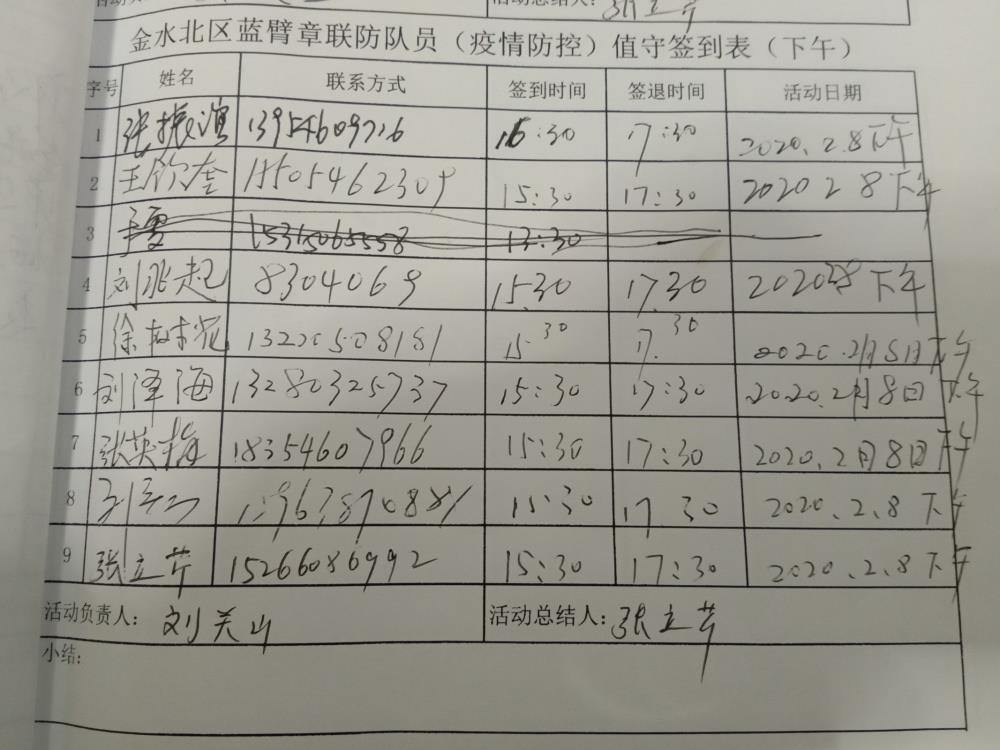 活动总结人: 张立芹
金水北区蓝臂章联防队员（疫情防控）值守签到表（下午）
序号 姓名 联系方式 签到时间 签退时间 活动日期
1 张振谊 13954609716 16:30 17:30 2020.2.8下午
2 15:30 17:30 2020 2 8下午
3 15315065558 13:30
4 8304069 15:30 17:30 2020 2 8 下午
5 15:30 17:30 2020.2月8日下午
6 刘泽海 13280325737 15:30 17:30 2020.2月8日下午
7 张英梅 18354607966 15:30 17:30 2020.2月8日下午
8 15:30 17:30 2020.2.8下午
9 张立芹 15266086992 15:30 17:30 2020.2.8下午
活动负责人: 刘关山 活动总结人: 张立芹
小结: